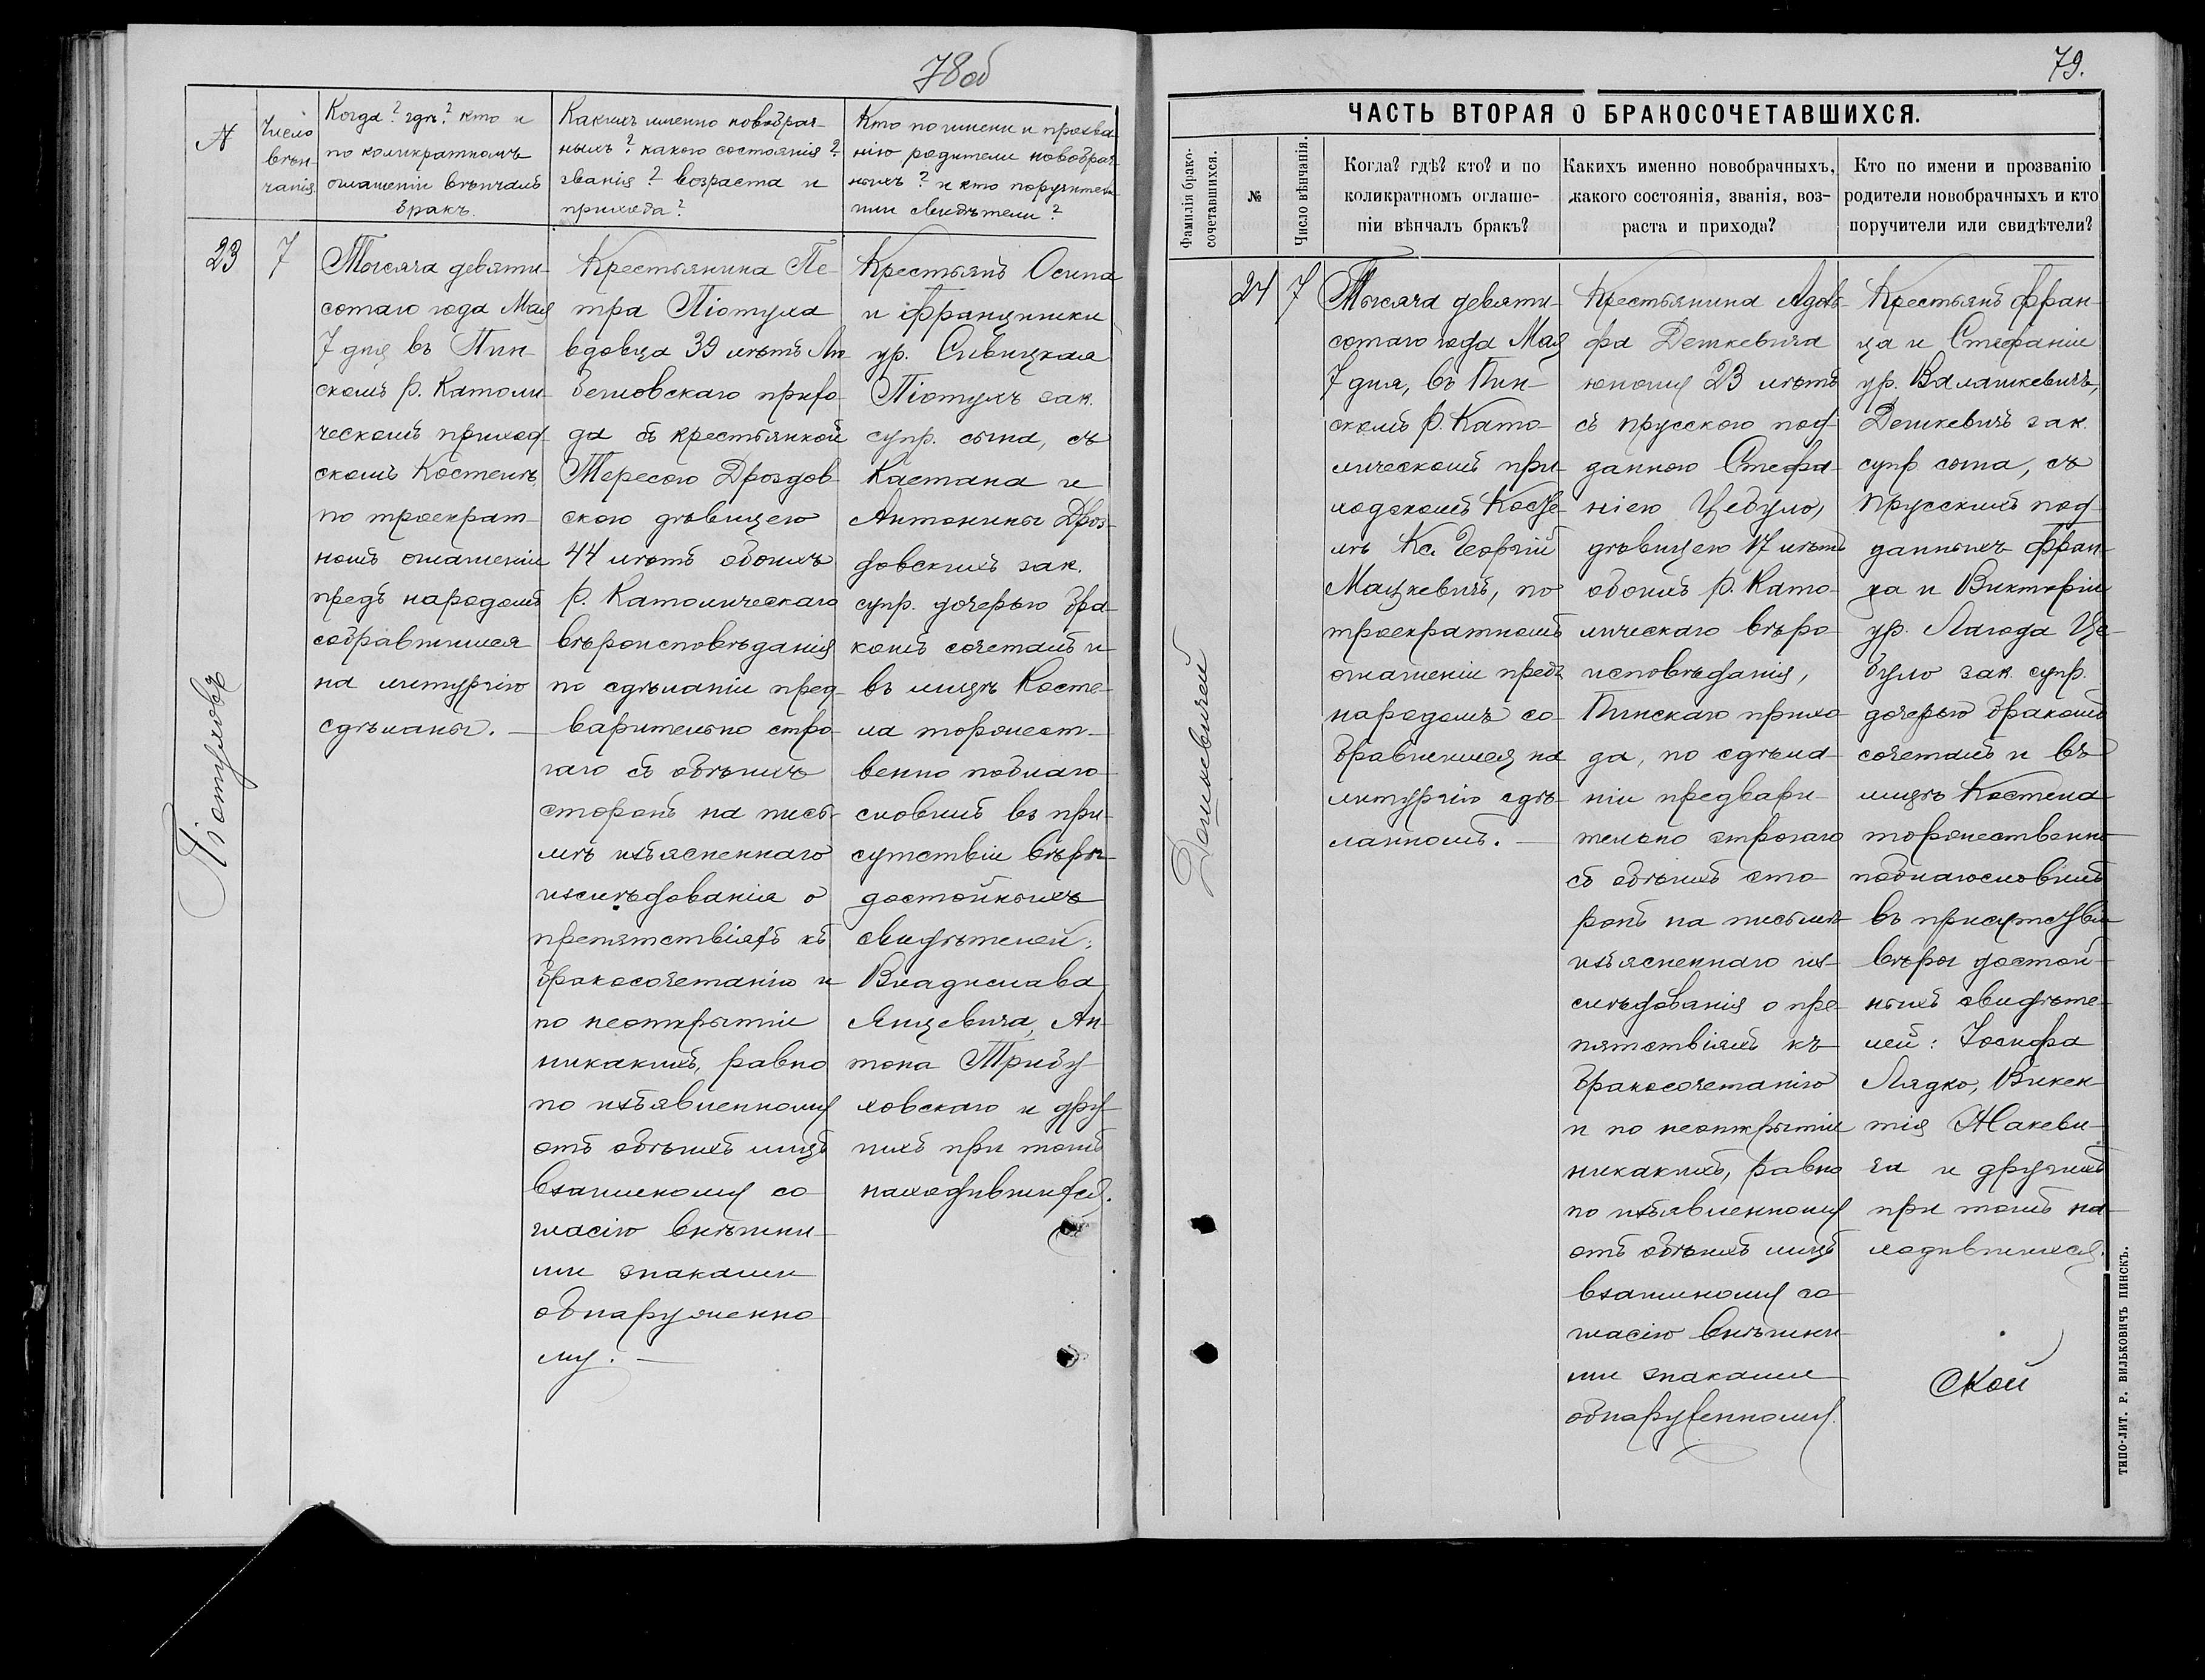 78об
№
Число
вѣн-
чанія
Когда? гдѣ? кто и
по коликратномъ
оглашеніи вѣнчалъ
бракъ.
Какихъ именно новобрач-
ныхъ? какого состоянія?
званія? возраста и
прихода?
Кто по имени и прозва-
нію родители новобрач-
ныхъ? и кто поручители
или свидѣтели?
Піотуховъ
23
7
Тысяча девяти-
сотаго года Мая
7 дня въ Пин-
скомъ р. Католи-
ческомъ приход-
скомъ Костелѣ
по троекрат-
номъ оглашеніи
предъ народомъ
собравшимся
на литургію
сдѣланы. —
Крестьянина Пе-
тра Піотуха
вдовца 39 лѣтъ Лю-
бешовскаго прихо-
да съ крестьянкой
Тересою Дроздов-
скою дѣвицею
44 лѣтъ обоихъ
р. Католическаго
вѣроисповѣданія
по сдѣланіи пред-
варительно стро-
гаго съ обѣихъ
сторонъ на пись-
мѣ изъясненнаго
изслѣдованія о
препятствіяхъ къ
бракосочетанію и
по неоткрытіи
никакихъ, равно
по изъявленному
отъ обѣихъ лицъ
взаимному со-
гласію внѣшни-
ми знаками
обнаруженно-
му. —
Крестьянъ Осипа
и Францишки
ур. Сивицкая
Піотухъ зак.
супр. сына, съ
Каетана и
Антонины Дроз-
довскихъ зак.
супр. дочерью бра-
комъ сочеталъ и
въ лицѣ Косте-
ла торжест-
венно поблаго-
словилъ въ при-
сутствіи вѣры-
достойныхъ
свидѣтелей:
Владислава
Янцевича, Ан-
тона Трибу-
ховскаго и дру-
гихъ при томъ
находившихся.
79.
ЧАСТЬ ВТОРАЯ О БРАКОСОЧЕТАВШИХСЯ.
Фамилія брако-
сочетавшихся.
№
Число вѣнчанія.
Когда? гдѣ? кто? и по
коликратномъ оглаше-
ніи вѣнчалъ бракъ?
Какихъ именно новобрачныхъ,
какого состоянія, званія, воз-
раста и прихода?
Кто по имени и прозванію
родители новобрачныхъ и кто
поручители или свидѣтели?
Дешкевичей
24
7
Тысяча девяти-
сотаго года Мая
7 дня, въ Пин-
скомъ р. Като-
лическомъ при-
ходскомъ Косте-
лѣ Кс. Георгій
Мацкевичъ, по
троекратномъ
оглашеніи предъ
народомъ со-
бравшимся на
литургію сдѣ-
ланномъ. —
Крестьянина Адоль-
фа Дешкевича
юношу 23 лѣтъ
съ прусскою под-
данною Стефа-
ніею Цебуло,
дѣвицею 17 лѣтъ
обоихъ р. Като-
лическаго вѣро-
исповѣданія,
Пинскаго прихо-
да, по сдѣла-
ніи предвари-
тельно строгаго
съ обѣихъ сто-
ронъ на письмѣ
изъясненнаго из-
слѣдованія о пре-
пятствіяхъ къ
бракосочетанію
и по неоткрытіи
никакихъ, равно
по изъявленному
отъ обѣихъ лицъ
взаимному со-
гласію внѣшни-
ми знаками
обнаруженному.
Крестьянъ Фран-
ца и Стефаніи
ур. Валашкевичъ,
Дешкевичъ зак.
супр. сына, съ
прусскихъ под-
данныхъ Фран-
ца и Викторіи
ур. Лагода Це-
було зак. супр.
дочерью бракомъ
сочеталъ и въ
лицѣ Костела
торжественно
поблагословилъ
въ присутствіи
вѣры достой-
ныхъ свидѣте-
лей: Іосифа
Лядко, Викен-
тія Жакеви-
ча и другихъ
при томъ на-
ходившихся.
ской
ТИПО-ЛИТ. Р. ВИЛЬКОВИЧЪ ПИНСКЪ.